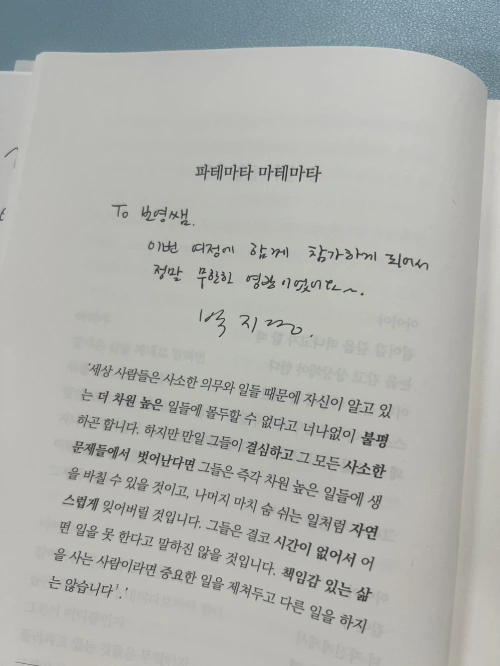 파테마타 마테마타
To 보영쌤.
이번 여정에 함께 참가하게 되어서
정말 무한한 영광이었어요~.
지
'세상 사람들은 사소한 의무와 일들 때문에 자신이 알고 있
는 더 차원 높은 일들에 몰두할 수 없다고 너나없이 불평
하곤 합니다. 하지만 만일 그들이 결심하고 그 모든 사소한
문제들에서 벗어난다면 그들은 즉각 차원 높은 일들에 생
을 바칠 수 있을 것이고, 나머지 마치 숨 쉬는 일처럼 자연
스럽게 잊어버릴 것입니다. 그들은 결코 시간이 없어서 어
떤 일을 못 한다고 말하진 않을 것입니다. 책임감 있는 삶
을 사는 사람이라면 중요한 일을 제쳐두고 다른 일을 하지
는 않습니다¹.'